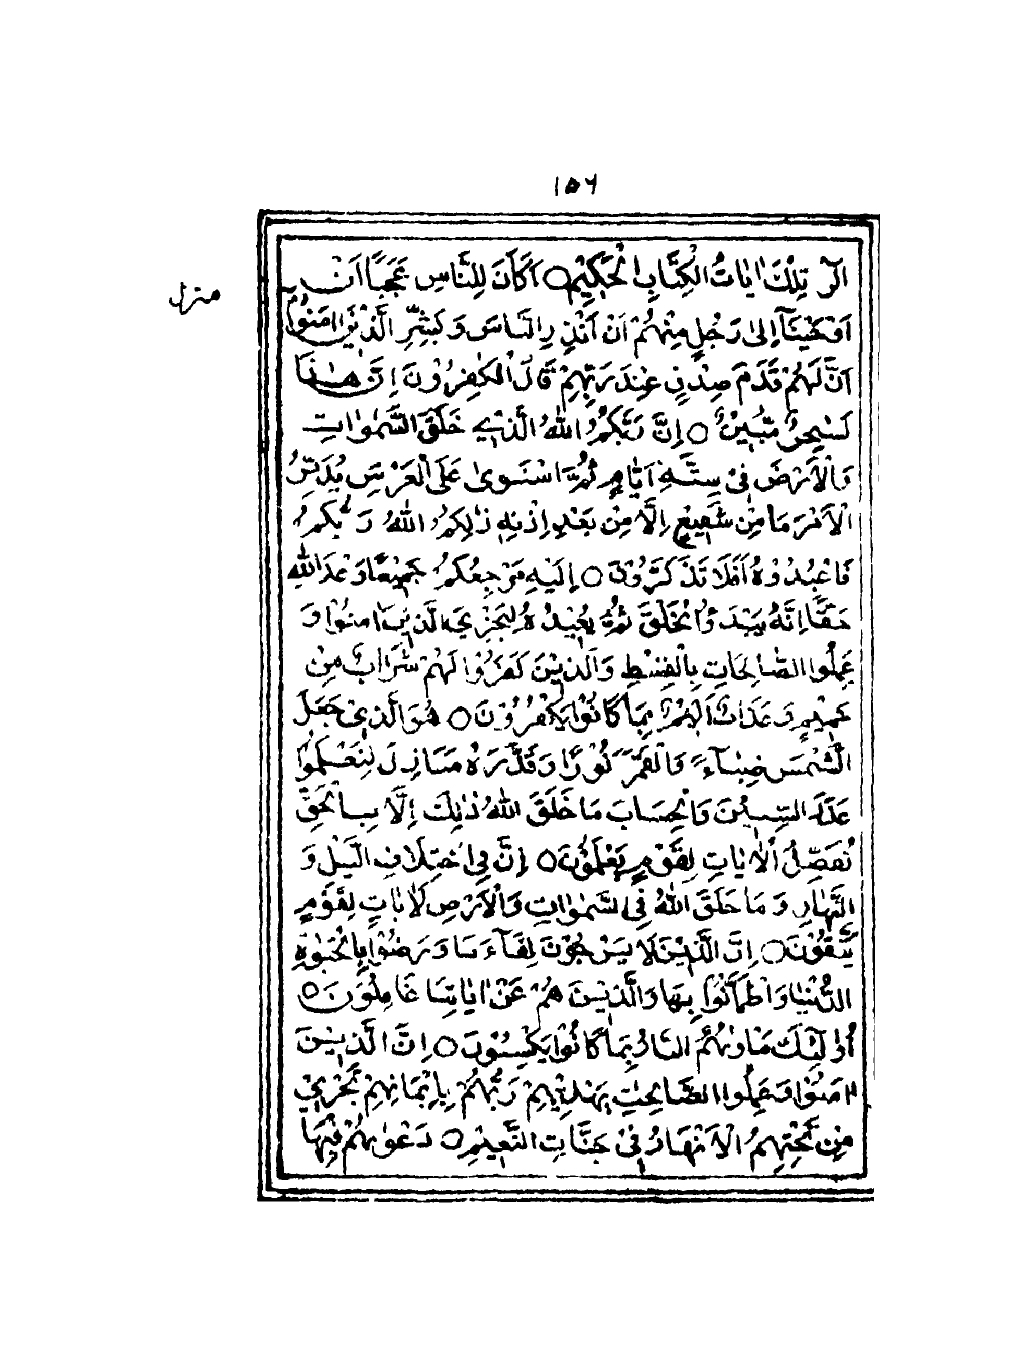 ١٥٦
منزل
الٓرٰ تِلْكَ اٰيَاتُ الْكِتَابِ الْحَكِيْمِ ○ اَكَانَ لِلنَّاسِ عَجَبًا اَنْ
اَوْحَيْنَآ اِلٰى رَجُلٍ مِنْهُمْ اَنْ اَنْذِرِ النَّاسَ وَبَشِّرِ الَّذِيْنَ اٰمَنُوْا
اَنَّ لَهُمْ قَدَمَ صِدْقٍ عِنْدَ رَبِّهِمْ قَالَ الْكٰفِرُوْنَ اِنَّ هٰذَا
لَسٰحِرٌ مُّبِيْنٌ ○ اِنَّ رَبَّكُمُ اللهُ الَّذِيْ خَلَقَ السَّمٰوَاتِ
وَالْاَرْضَ فِيْ سِتَّةِ اَيَّامٍ ثُمَّ اسْتَوٰى عَلَى الْعَرْشِ يُدَبِّرُ
الْاَمْرَ مَا مِنْ شَفِيْعٍ اِلَّا مِنْ بَعْدِ اِذْنِهٖ ذٰلِكُمُ اللهُ رَبُّكُمْ
فَاعْبُدُوْهُ اَفَلَا تَذَكَّرُوْنَ ○ اِلَيْهِ مَرْجِعُكُمْ جَمِيْعًا وَعْدَ اللهِ
حَقًّا اِنَّهٗ يَبْدَؤُا الْخَلْقَ ثُمَّ يُعِيْدُهٗ لِيَجْزِيَ الَّذِيْنَ اٰمَنُوْا وَ
عَمِلُوا الصَّالِحَاتِ بِالْقِسْطِ وَالَّذِيْنَ كَفَرُوْا لَهُمْ شَرَابٌ مِنْ
حَمِيْمٍ وَعَذَابٌ اَلِيْمٌ بِمَا كَانُوْا يَكْفُرُوْنَ ○ هُوَ الَّذِيْ جَعَلَ
الشَّمْسَ ضِيَآءً وَالْقَمَرَ نُوْرًا وَقَدَّرَهٗ مَنَازِلَ لِتَعْلَمُوْا
عَدَدَ السِّنِيْنَ وَالْحِسَابَ مَا خَلَقَ اللهُ ذٰلِكَ اِلَّا بِالْحَقِّ
نُفَصِّلُ الْاٰيَاتِ لِقَوْمٍ يَعْلَمُوْنَ ○ اِنَّ فِي اخْتِلَافِ الَّيْلِ وَ
النَّهَارِ وَمَا خَلَقَ اللهُ فِي السَّمٰوَاتِ وَالْاَرْضِ لَاٰيَاتٍ لِقَوْمٍ
يَّتَّقُوْنَ ○ اِنَّ الَّذِيْنَ لَا يَرْجُوْنَ لِقَآءَنَا وَرَضُوْا بِالْحَيٰوةِ
الدُّنْيَا وَاطْمَاَنُّوْا بِهَا وَالَّذِيْنَ هُمْ عَنْ اٰيَاتِنَا غَافِلُوْنَ ○
اُولٰٓئِكَ مَاْوٰىهُمُ النَّارُ بِمَا كَانُوْا يَكْسِبُوْنَ ○ اِنَّ الَّذِيْنَ
اٰمَنُوْا وَعَمِلُوا الصَّالِحٰتِ يَهْدِيْهِمْ رَبُّهُمْ بِاِيْمَانِهِمْ تَجْرِيْ
مِنْ تَحْتِهِمُ الْاَنْهَارُ فِيْ جَنَّاتِ النَّعِيْمِ ○ دَعْوٰىهُمْ فِيْهَا